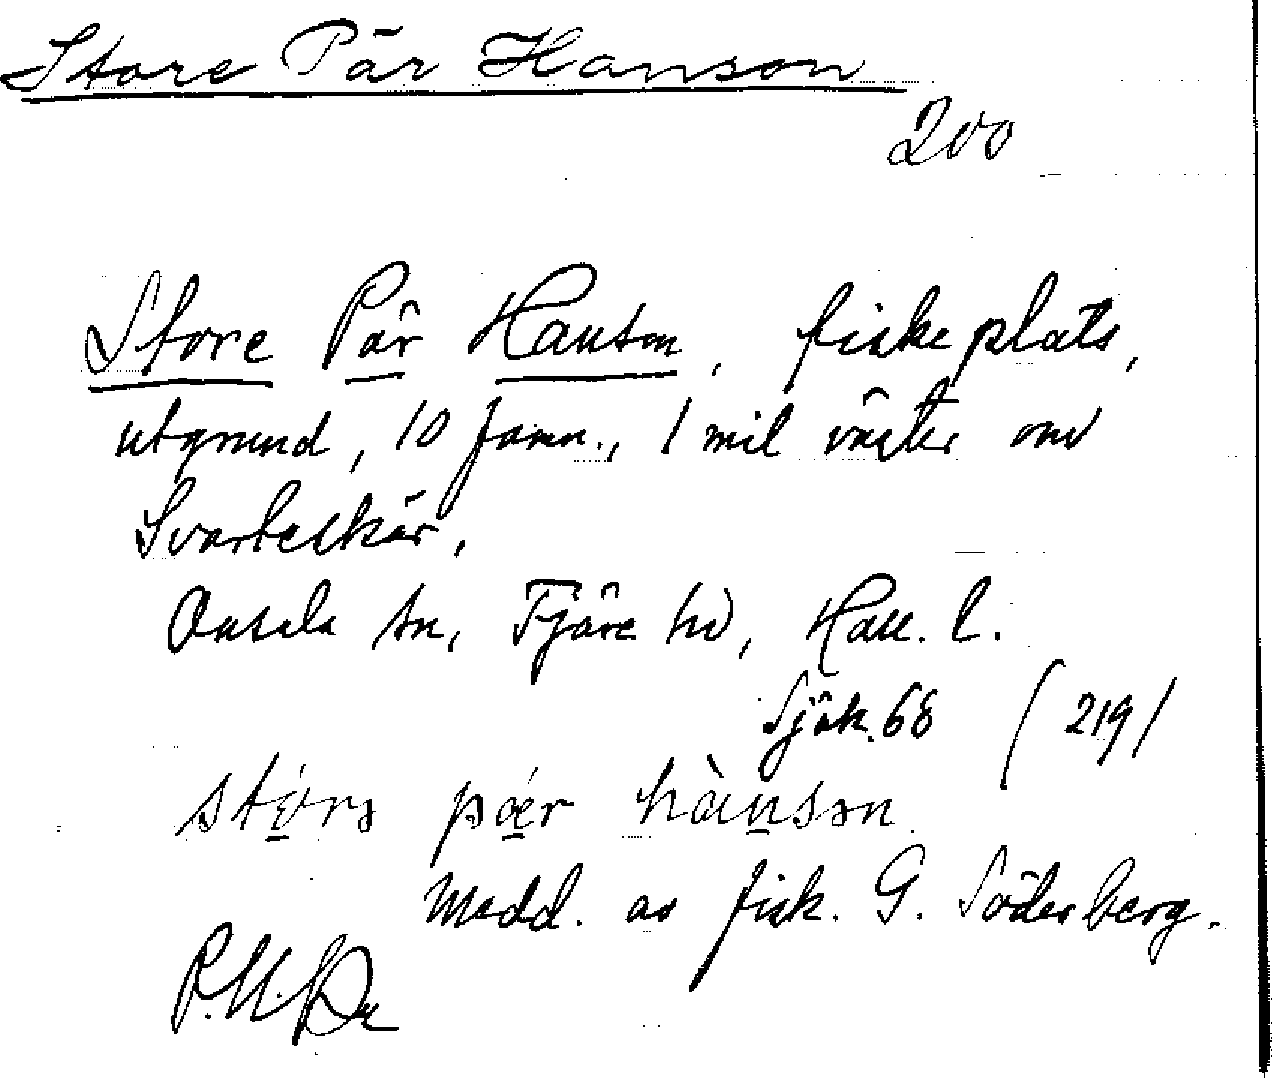 Store Pär Hanson
200
Store Pär Hanson, fiskeplats,
utgrund, 10 famn., 1 mil väster om
Svarteskär.
Onsala sn, Fjäre hd, Hall. l.
Sjök. 68 (219)
Medd. av fisk. G. Söderberg.